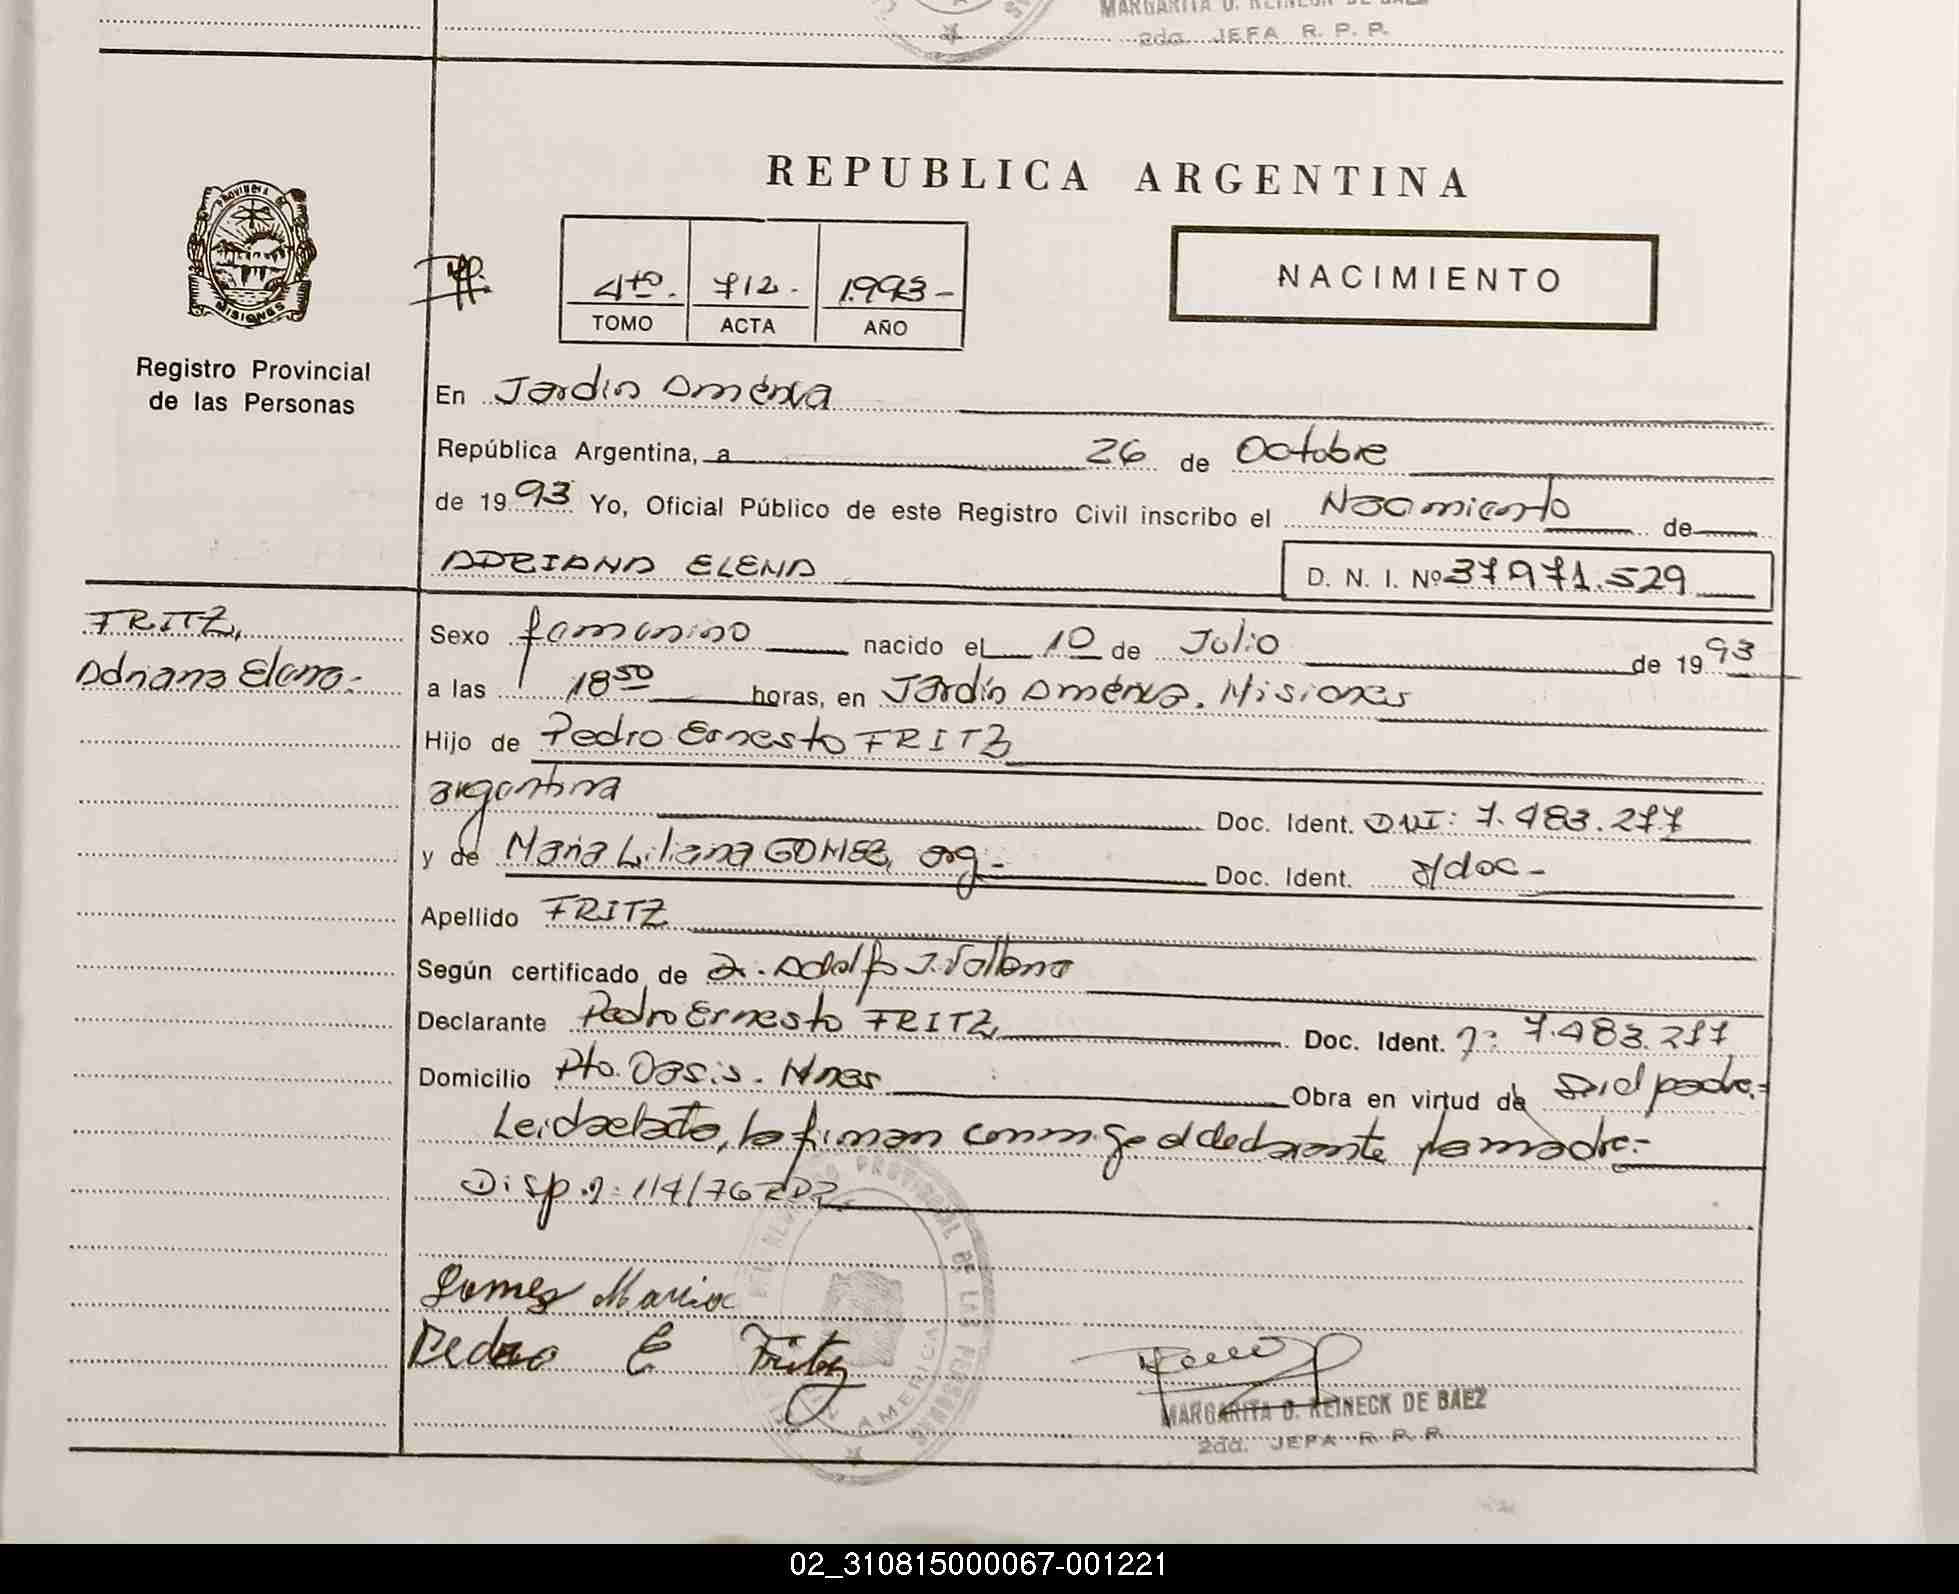 MARGARITA O. REINECK DE BAEZ
2da. JEFA R. P. P.
REPUBLICA ARGENTINA
PROVINCIA DE
MISIONES
4to. 712.- 1.993-
TOMO ACTA AÑO
NACIMIENTO
Registro Provincial
de las Personas
En Jardín América
República Argentina, a 26 de Octubre
de 1993 Yo, Oficial Público de este Registro Civil inscribo el Nacimiento de
ADRIANA ELENA D. N. I. Nº 37971.529
FRITZ,
Adriana Elena.-
Sexo femenino nacido el 10 de Julio de 1993
a las 18 50 horas, en Jardín América. Misiones
Hijo de Pedro Ernesto FRITZ
argentina Doc. Ident. DNI: 7.483.277
y de María Liliana GOMEZ, arg.- Doc. Ident. s/doc-
Apellido FRITZ
Según certificado de Dr. Adolfo J.
Declarante Pedro Ernesto FRITZ, Doc. Ident. 7.483.277
Domicilio Pto. Oasis. Mnes Obra en virtud de ser el padre.=
Leída el acta, la firman conmigo el declarante y la madre.-
Disp. n: 114/76
Gomez Maria
Pedro E Fritz
MARGARITA O. REINECK DE BAEZ
2da. JEFA R. P. P.
02_310815000067-001221